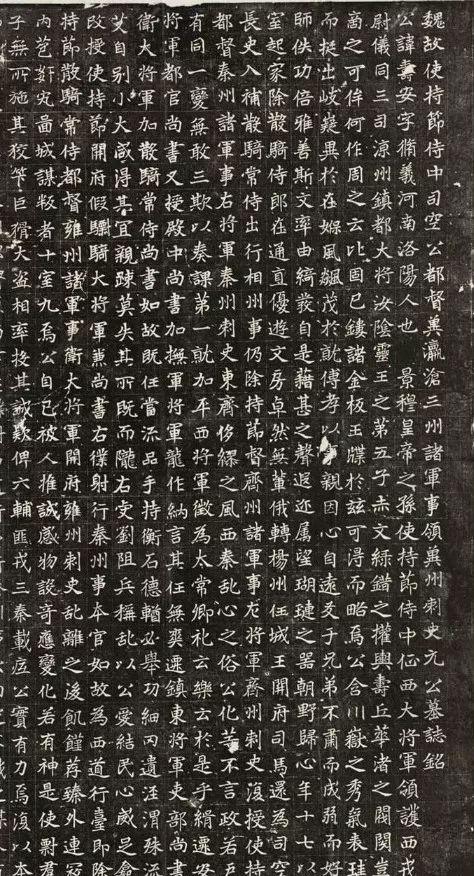 魏故使持節侍中司空公都督冀瀛滄三州諸軍事領冀州刺史元公墓誌銘
公諱壽安字脩義河南洛陽人也 景穆皇帝之孫使持節侍中征西大將軍領護西戎
尉儀同三司涼州鎮都大將汝陰靈王之第五子赤文綠錯之權輿壽丘華渚之閥閱豈
商之可侔何作周之云比固已鏤諸金板王牒於玆可得而略焉公含川嶽之秀氣表珪
而挺出岐嶷異於在緥風飆茂於就傅孝以事親因心自遠爻于兄弟不肅而成弱而好
師佚功倍雅善斯文率由綺發自是藉甚之聲遐迩属望瑚璉之器朝野歸心年十七以
室起家除散騎侍郎在通直優遊文房卓然無輩俄轉楊州任城王開府司馬還為司空
長史入補散騎常侍出行相州事仍除持節督齊州諸軍事左將軍齊州刺史復授使持
都督秦州諸軍事右將軍秦州刺史東齊侈繆之風西秦乱心之俗公化等不言政若戸
有同一變無敢三欺以奏課第一就加平西將軍徵為太常卿礼云樂云於是乎緝遷安
將軍都官尚書又授殿中尚書加撫軍將軍龍作納言其任無爽遷鎮東將軍吏部尚書
衛大將軍加散騎常侍尚書如故既任當流品手持衡石德輶必舉功細罔遺涇渭殊流
艾自别小大咸得其宜親踈莫失其所既而隴右受劉阻兵稱乱以公愛結民心威足
改授使持節開府假驃騎大將軍兼尚書右僕射行秦州事本官如故為西道行臺即除
持節散騎常侍都督雍州諸軍事衛大將軍開府雍州刺史乱離之後飢饉荐臻外連寇
内苞姧宄啚城謀叛者十室九焉公自已被人推誠感物設奇應變化若有神是使剽
子無所施其狡筭巨猾大盗相率投其誠款俾六輔匪戎三秦載底公實有力焉復以本